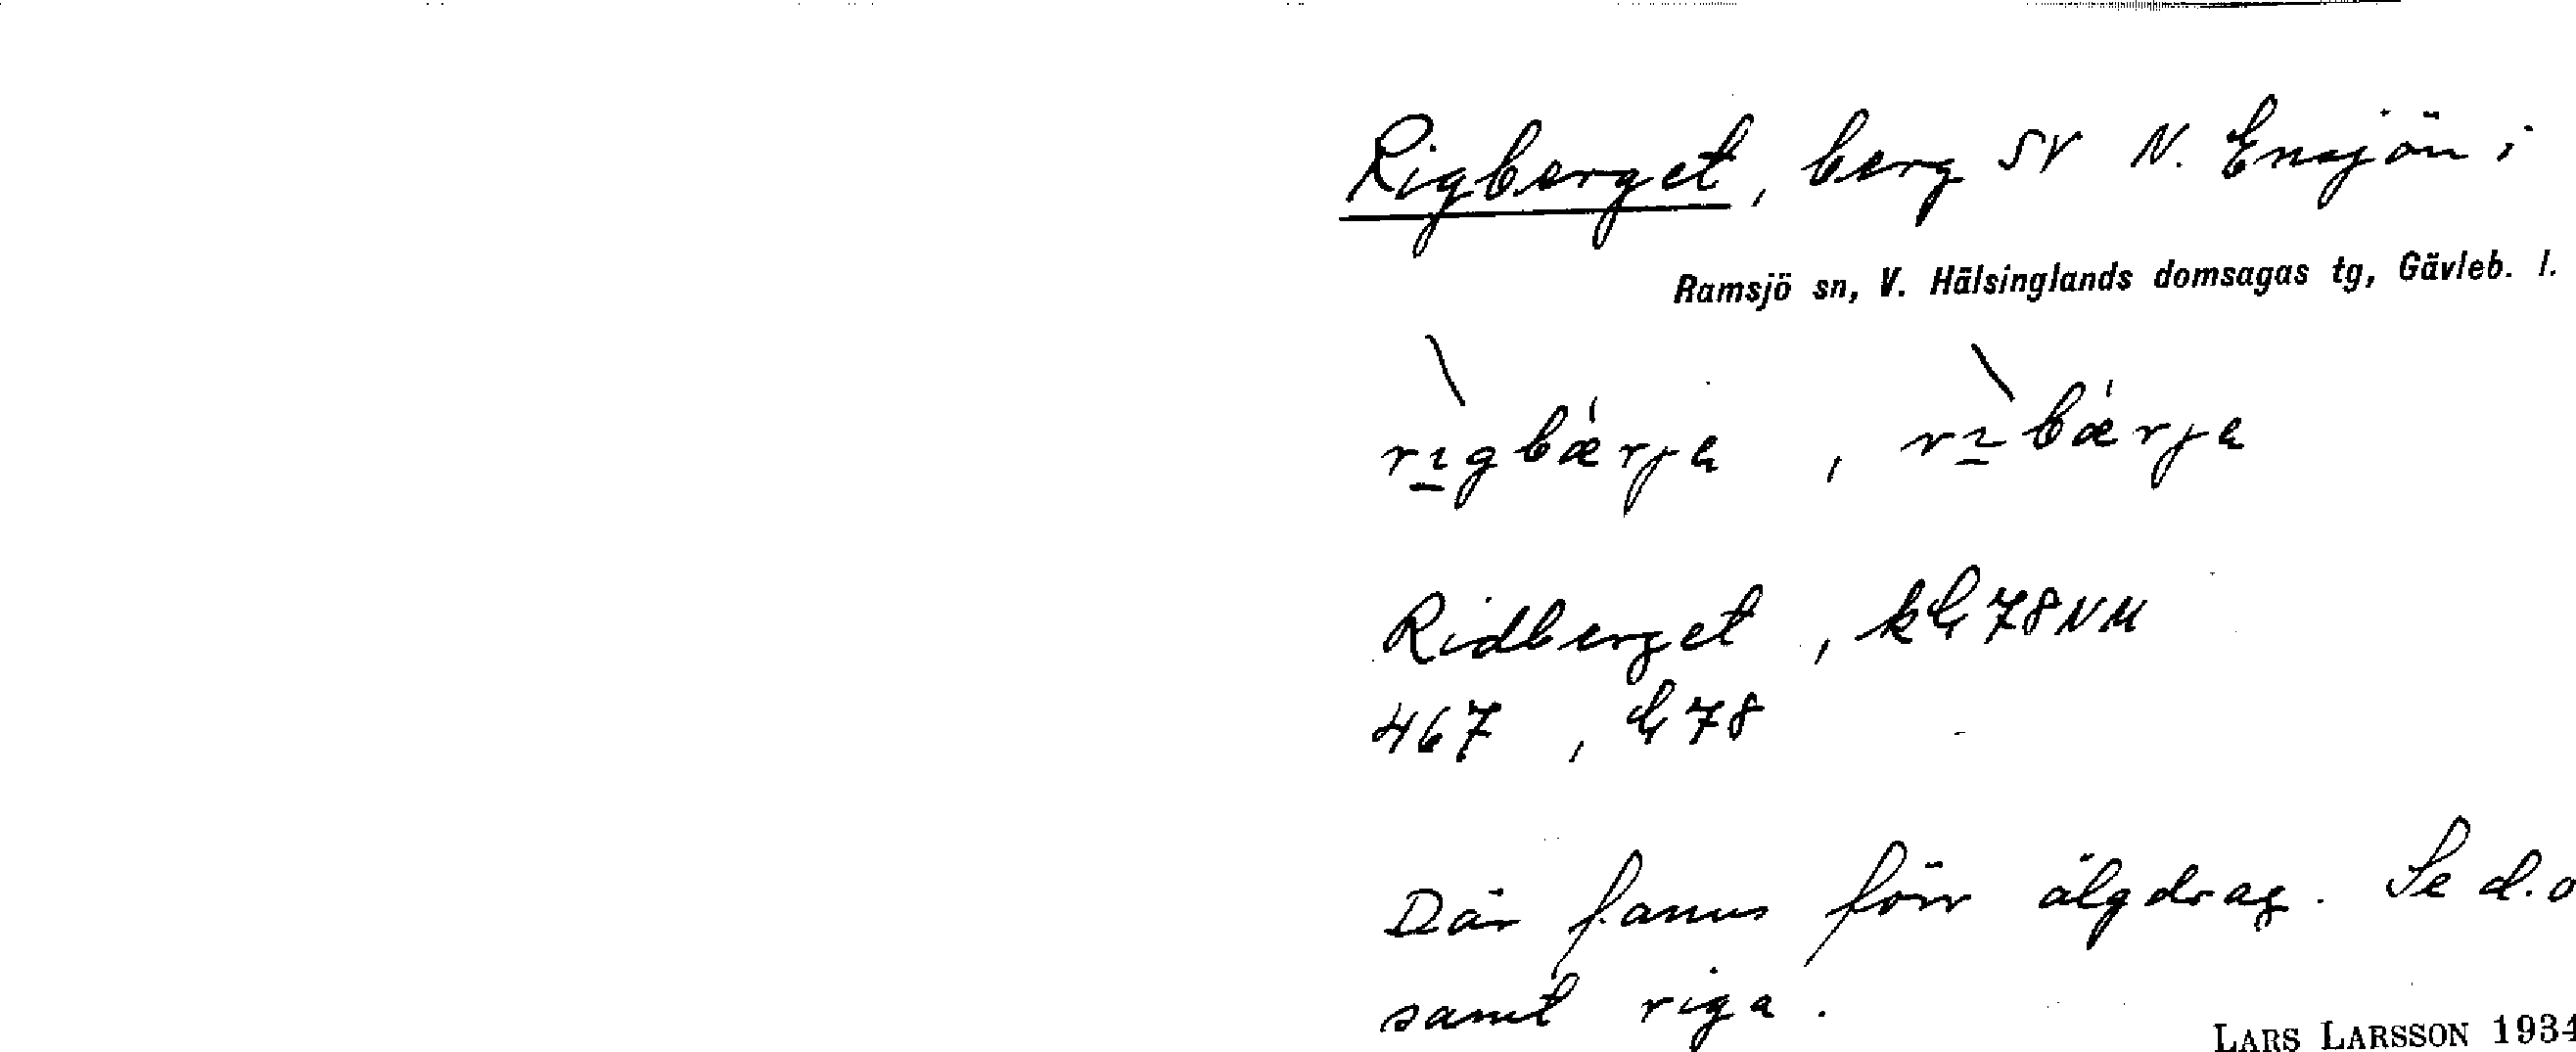 Rigberget, berg SV N. Ensjön i
Ramsjö sn, V. Hälsinglands domsagas tg, Gävleb. l.
rɩgbærja, rɩbærja
Ridberget, kbl 78 NM
467, bl 78
Där fanns förr älgdrag. Se d.o
samt riga.
LARS LARSSON 1934